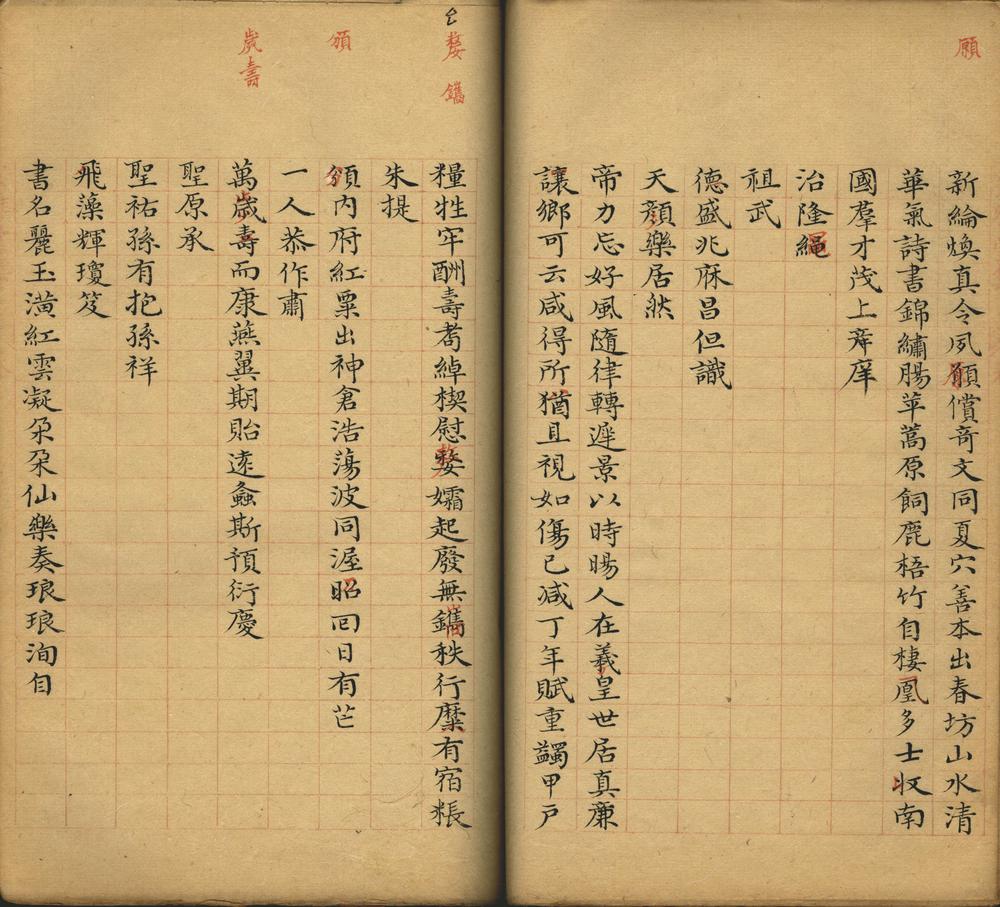 願
新綸煥真令夙願償奇文同夏穴善本出春坊山水清
華氣詩書錦繡腸苹蒿原飼鹿梧竹自棲鳳多士收南
國羣才茂上庠庠
治隆繩
祖武
德盛兆庥昌但識
天顏樂居然
帝力忘好風隨律轉遲景以時暘人在羲皇世居真廉
讓鄉可云咸得所猶且視如傷已减丁年賦重蠲甲戶
嫠 鐫
糧牲牢酬壽耇綽楔慰嫠孀起廢無鐫秩行糜有宿粻
朱提
頒
頒內府紅粟出神倉浩蕩波同渥昭回日有芒
一人恭作肅
歲壽
萬歲壽而康燕翼期貽遠螽斯預衍慶
聖原承
聖祐孫有抱孫祥
飛藻輝瓊笈
書名麗玉潢紅雲凝朶朶仙樂奏琅琅洵自